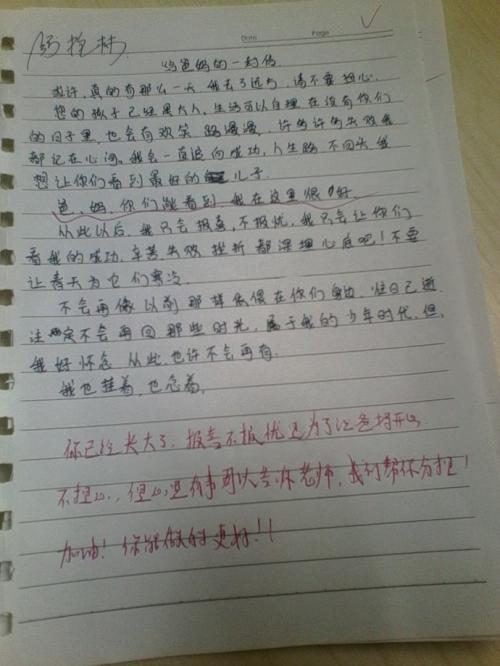 Date Page
给爸妈的一封信
或许,真的有那么一天,我去了远方,请不要担心.
您的孩子已经是大人,生活可以自理在没有你们
的日子里,也会有欢笑 路漫漫,许多许多失败我
都记在心间,我会一直追向成功,人生路,不回头我
想让你们看到最好的儿子.
爸,妈,你们能看到 我在这里很好
从此以后,我只会报喜,不报忧,我只会让你们
看我的成功,辛苦失败 挫折 都深埋心底吧!不要
让春天为它们寒冷.
不会再像以前那样依偎在你们身边,但自己
注定不会再回那些时光,属于我的少年时代,但,
我好怀念 从此也许不会再有.
我也挂着,也念着,
你已经长大了,报喜不报忧是为了让爸妈开心
不担心,但心里有事可以告诉老师,我可帮你分担!
加油!你能做的更好!!